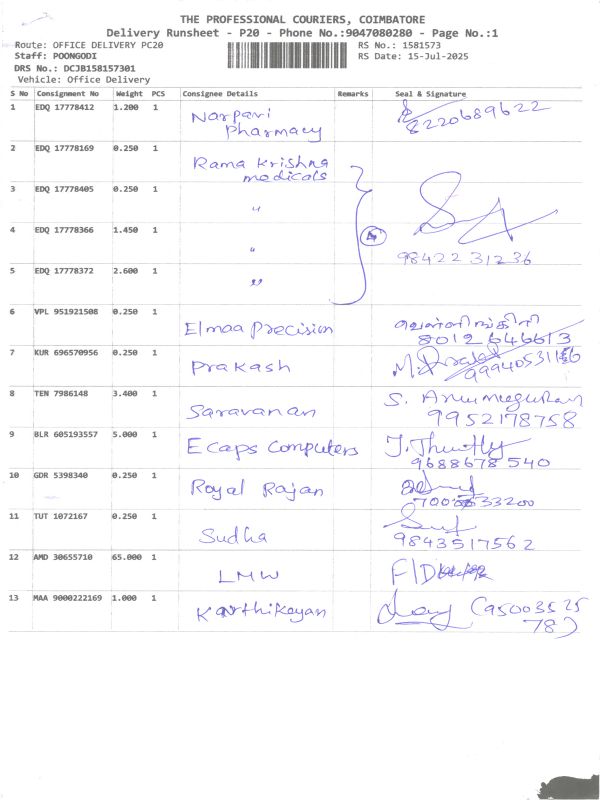 THE PROFESSIONAL COURIERS, COIMBATORE
Delivery Runsheet - P20 - Phone No.:9047080280 - Page No.:1
Route: OFFICE DELIVERY PC20 RS No.: 1581573
Staff: POONGODI RS Date: 15-Jul-2025
DRS No.: DCJB158157301
Vehicle: Office Delivery
S No Consignment No Weight PCS Consignee Details Remarks Seal & Signature
1 EDQ 17778412 1.200 1 Narpavi Pharmacy 8220689622
2 EDQ 17778169 0.250 1 Rama Krishna medicals
3 EDQ 17778405 0.250 1 "
4 EDQ 17778366 1.450 1 " 4 98422 31236
5 EDQ 17778372 2.600 1 "
6 VPL 951921508 0.250 1 Elmaa Precision வெள்ளிங்கிரி 8012646613
7 KUR 696570956 0.250 1 Prakash
8 TEN 7986148 3.400 1 Saravanan S. Arumugam 9952178758
9 BLR 605193557 5.000 1 Ecaps Computers 9688678540
10 GDR 5398340 0.250 1 Royal Rajan
11 TUT 1072167 0.250 1 Sudha 9843517562
12 AMD 30655710 65.000 1 LMW F/D
13 MAA 9000222169 1.000 1 Karthikeyan (9500352578)